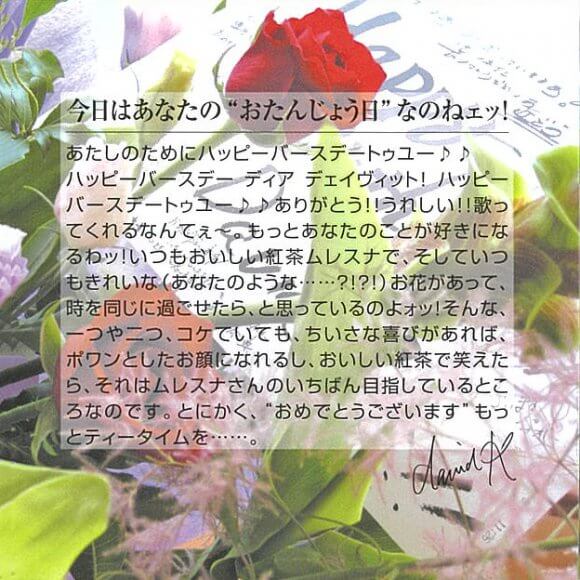 今日はあなたの“おたんじょう日”なのねェッ!
あたしのためにハッピーバースデートゥユー♪♪
ハッピーバースデー ディア デェイヴィット! ハッピー
バースデートゥユー♪♪ありがとう!!うれしい!!歌っ
てくれるなんてぇ〜、もっとあなたのことが好きにな
るわッ!いつもおいしい紅茶ムレスナで、そしていつ
もきれいな(あなたのような……?!?!)お花があって、
時を同じに過ごせたら、と思っているのよォッ!そんな、
一つや二つ、コケでいても、ちいさな喜びがあれば、
ポワンとしたお顔になれるし、おいしい紅茶で笑えた
ら、それはムレスナさんのいちばん目指しているとこ
ろなのです。とにかく、“おめでとうございます”もっ
とティータイムを……。
David K
Happy